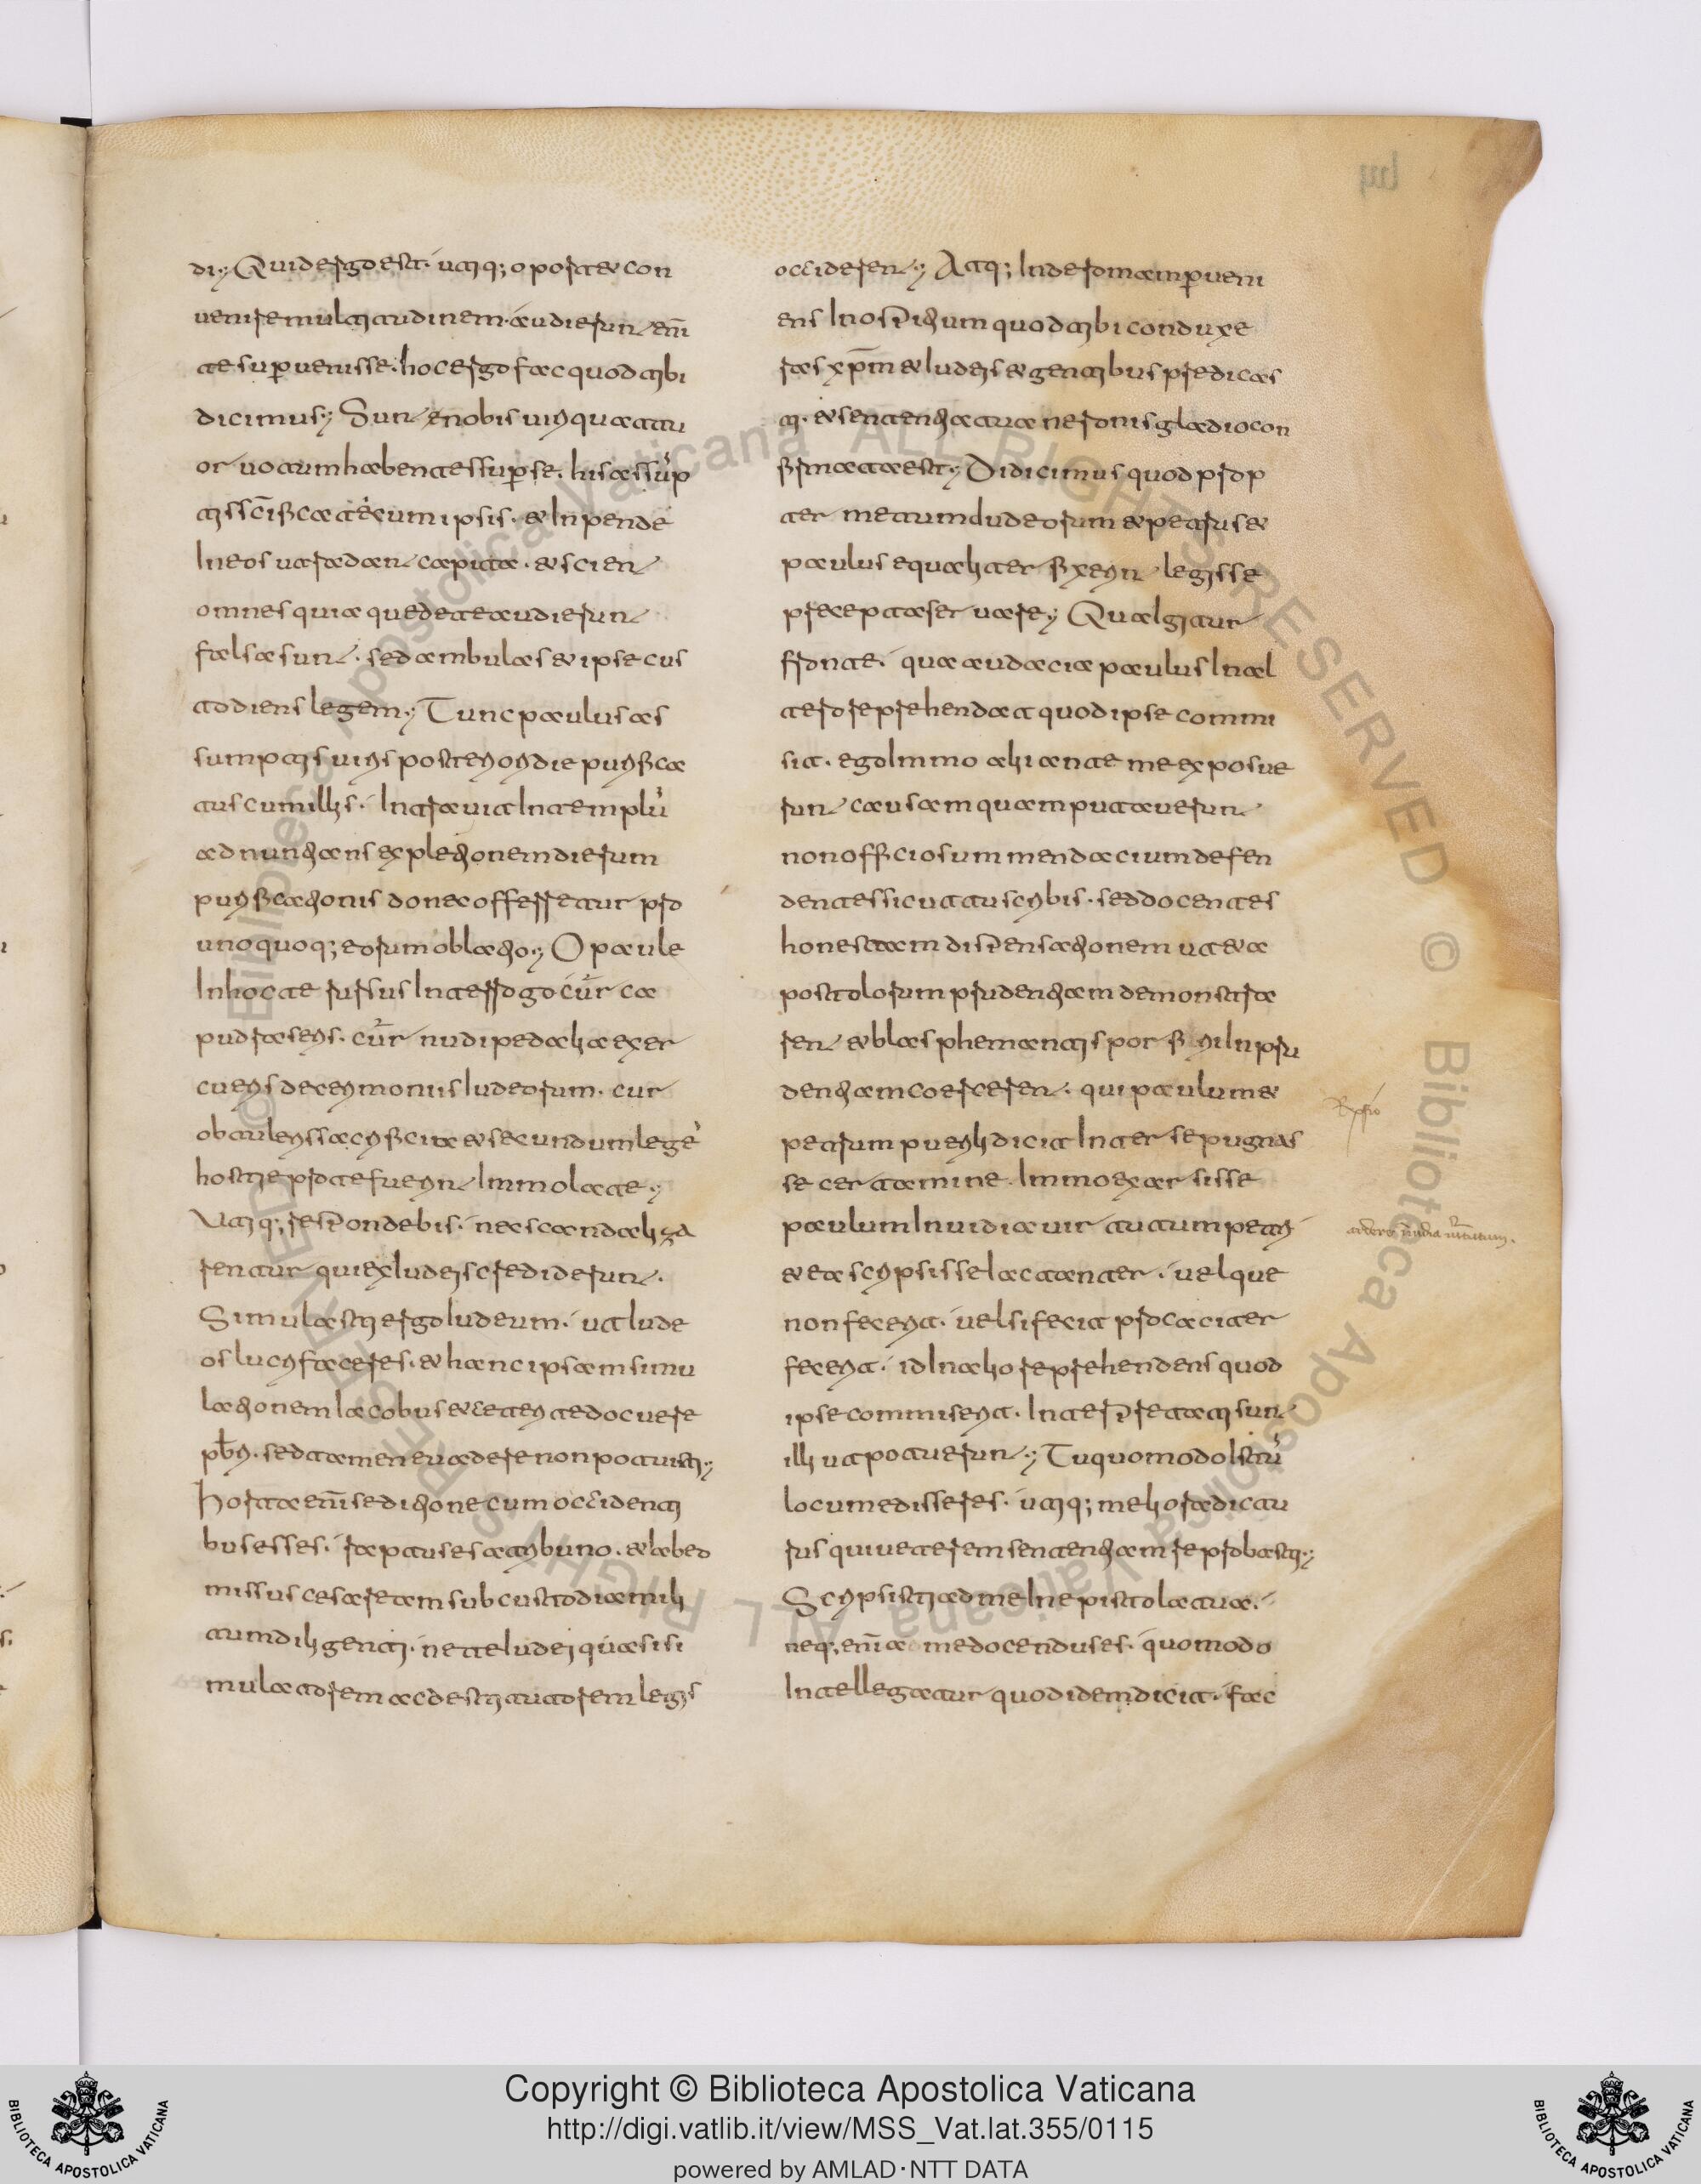 di; Quid ergo est. utiq; oportet con
uenire multitudinem. audierunt enī
te sup̄uenisse. hoc ergo fac quod tibi
dicimus; Sunt enobis uiri quattu
or uotum habentes sup̄ se. his assūp
tis sc̄ifica te cum ipsis. et Inpende
In eos ut radant capita. et scient
omnes quia que de te audierunt
falsa sunt. sed ambulas et ipse cus
todiens legem; Tunc paulus as
sumptis uiris postero die purifica
tus cum illis. Intrauit In templū
ad nuntians expletionem dierum
purificationis donec offerretur pro
unoquoq; eorum oblatio; O paule
In hoc te rursus Interrogo cur ca
pud raseris. cur nudipedalia exer
cueris de cerimoniis Iudeorum. cur
obtuleris sacrificia et secundum legē
hostie pro te fuerint Immolate;
Utiq; resp̄ondebis. ne scandaliza
rentur qui ex Iudeis crediderunt.
Simulasti ergo Iudeum. ut Iude
os lucrifaceres. et hanc ipsam simu
lationem Iacobus et ceteri te docuere
prb̄i. sed tamen euadere non potuisti;
Horta enī seditione cum occidenti
bus esses. raptus es a tribuno. et ab eo
missus cesaream sub custodia mili
tum diligenti. ne te Iudei quasi si
mulatorem ac destructorem legis
occiderent; Atq; Inde romam p̄ueni
ens In osp̄itium quod tibi conduxe
ras xp̄m et Iudeis et gentibus predicas
ti. et sententia tua neronis gladio con
firmata est; Didicimus quod prop
ter metum Iudeorum et petrus et
paulus equaliter finxerint legis se
precepta seruare; Qua Igitur
fronte. qua audacia paulus In al
tero reprehendat quod ipse commi
sit. ego Immo alii ante me exposue
runt causam quam putauerunt
non officiosum mendacium defen
dentes sicut tu scribis. sed docentes
honestam disp̄ensationem ut et a
postolorum prudentiam demonstra
rent et blasphemantis porfirii Inpru
dentiam coercerent. qui paulum et
petrum puerili dicit Inter se pugnas
se certamine. Immo exarsisse
paulum Inuidia uirtutum petri
et ea scripsisse Iactanter. uel que
non fecerit. uel si fecit procaciter
fecerit. id In alio reprehendens quod
ipse commiserit. Interp̄retati sunt
illi ut potuerunt; Tu quomodo Istū
locum edisseres. utiq; meliora dictu
rus qui ueterem sententiam reprobasti;
Scripsisti ad me In epistola tua.
neq; enī a me docendus es. quomodo
Intellegatur quod idem dicit. fac
Copyright © Biblioteca Apostolica Vaticana
http://digi.vatlib.it/view/MSS_Vat.lat.355/0115
powered by AMLAD·NTT DATA
BIBLIOTECA APOSTOLICA VATICANA
BIBLIOTECA APOSTOLICA VATICANA